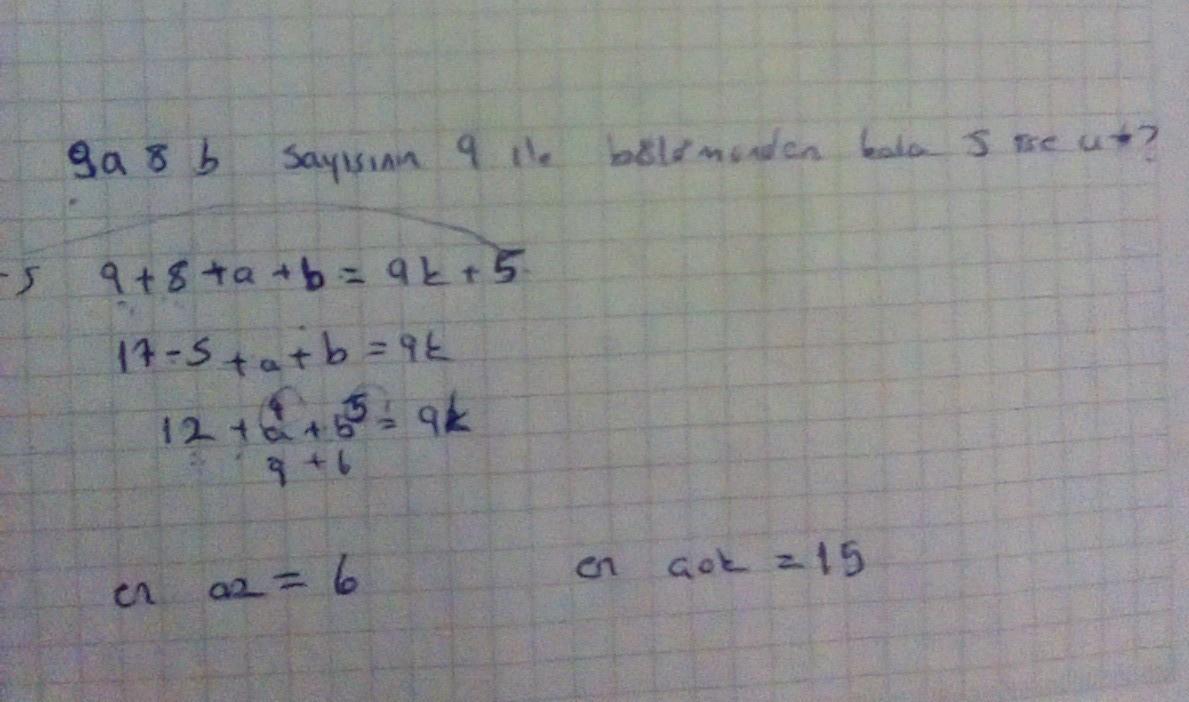 9a8b sayısının 9 ile bölümünden kala 5 ise
-5 9+8+a+b=9k+5
17-5+a+b=9k
12+a+b=9k
9+6
en az=6 en çok=15